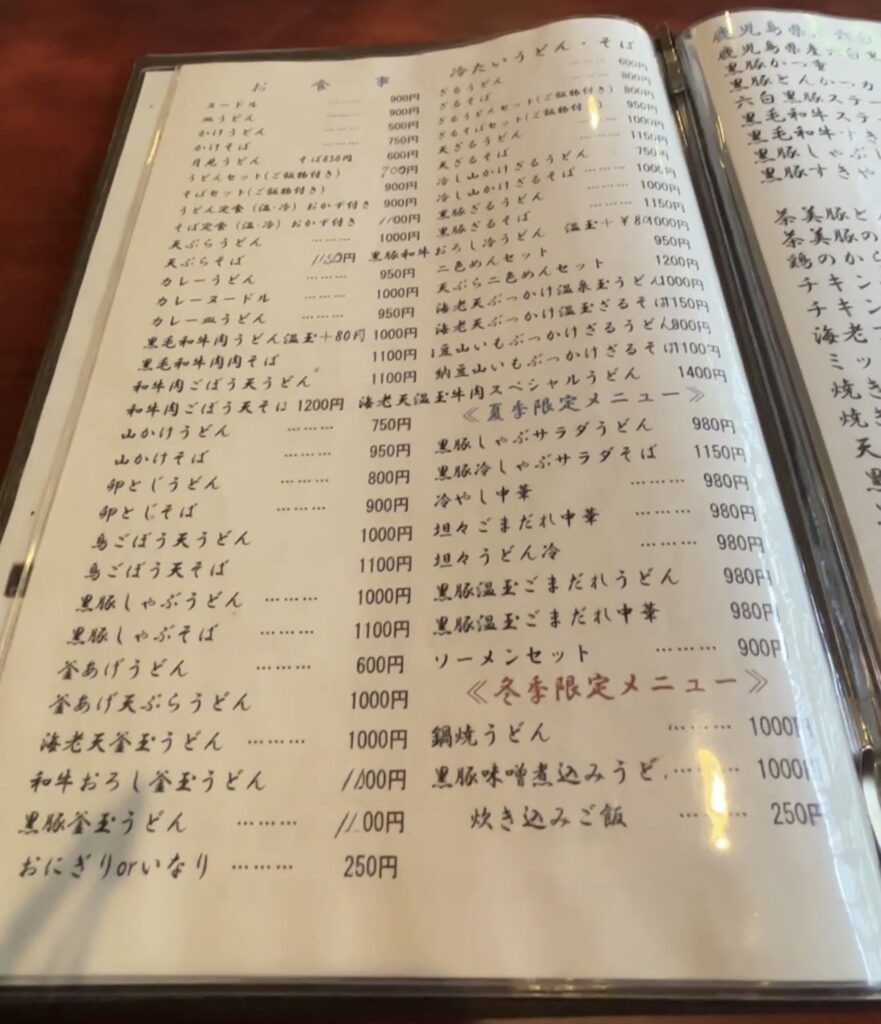 お食事
ヌードル ……… 900円
皿うどん ……… 900円
かけうどん ……… 500円
かけそば ……… 750円
月見うどん そば850円 600円
うどんセット(ご飯物付き) 700円
そばセット(ご飯物付き) 900円
うどん定食(温・冷)おかず付き 900円
そば定食(温・冷)おかず付き 1100円
天ぷらうどん ……… 1000円
天ぷらそば 1150円
カレーうどん ……… 950円
カレーヌードル ……… 1000円
カレー皿うどん ……… 950円
黒毛和牛肉うどん温玉+80円 1000円
黒毛和牛肉肉そば 1100円
和牛肉ごぼう天うどん 1100円
和牛肉ごぼう天そば 1200円
山かけうどん ……… 750円
山かけそば ……… 950円
卵とじうどん ……… 800円
卵とじそば ……… 900円
鳥ごぼう天うどん 1000円
鳥ごぼう天そば 1100円
黒豚しゃぶうどん ……… 1000円
黒豚しゃぶそば ……… 1100円
釜あげうどん ……… 600円
釜あげ天ぷらうどん 1000円
海老天釜玉うどん ……… 1000円
和牛おろし釜玉うどん 1100円
黒豚釜玉うどん ……… 1100円
おにぎりorいなり ……… 250円
冷たいうどん・そば
ざるうどん ……… 600円
ざるそば ……… 800円
ざるうどんセット(ご飯物付き) 800円
ざるそばセット(ご飯物付き) 950円
天ざるうどん ……… 1000円
天ざるそば ……… 1150円
冷し山かけざるうどん 750円
冷し山かけざるそば ……… 1000円
黒豚ざるうどん ……… 1000円
黒豚ざるそば ……… 1150円
黒豚和牛おろし冷うどん 温玉+¥80 1000円
二色めんセット 950円
天ぷら二色めんセット 1200円
海老天ぶっかけ温泉玉うどん 1000円
海老天ぶっかけ温玉ざるそば 1150円
納豆山いもぶっかけざるうどん 900円
納豆山いもぶっかけざるそば 1100円
海老天温玉牛肉スペシャルうどん 1400円
《夏季限定メニュー》
黒豚しゃぶサラダうどん 980円
黒豚冷しゃぶサラダそば 1150円
冷やし中華 ……… 980円
坦々ごまだれ中華 ……… 980円
坦々うどん冷 ……… 980円
黒豚温玉ごまだれうどん 980円
黒豚温玉ごまだれ中華 980円
ソーメンセット ……… 900円
《冬季限定メニュー》
鍋焼うどん ……… 1000円
黒豚味噌煮込みうど ……… 1000円
炊き込みご飯 ……… 250円
鹿児島県産六白
鹿児島県産六白黒
黒豚かつ重
黒豚とんかつカ
六白黒豚ステー
黒毛和牛ステ
黒毛和牛すき
黒豚しゃぶし
黒豚すきや
茶美豚と
茶美豚の
鶏のから
チキン
チキン
海老フ
ミッ
焼き
焼き
天